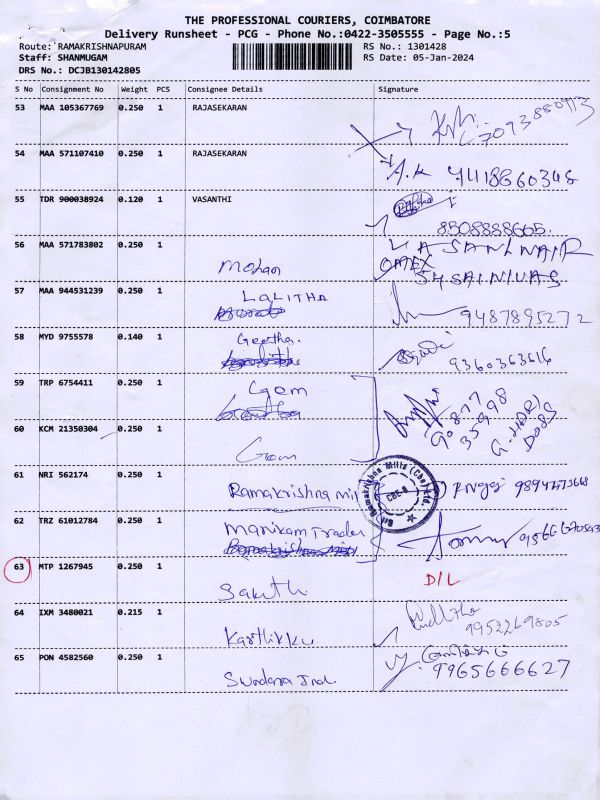 THE PROFESSIONAL COURIERS, COIMBATORE
Delivery Runsheet - PCG - Phone No.:0422-3505555 - Page No.:5
Route: RAMAKRISHNAPURAM RS No.: 1301428
Staff: SHANMUGAM RS Date: 05-Jan-2024
DRS No.: DCJB130142805
S No Consignment No Weight PCS Consignee Details Signature
53 MAA 105367769 0.250 1 RAJASEKARAN
54 MAA 571107410 0.250 1 RAJASEKARAN
55 TDR 900038924 0.120 1 VASANTHI
8508888665.
56 MAA 571783802 0.250 1 Mohan
57 MAA 944531239 0.250 1 LALITHA 9487895272
58 MYD 9755578 0.140 1 Geetha. 9360363616
59 TRP 6754411 0.250 1 Gem
60 KCM 21350304 0.250 1 Gem
61 NRI 562174 0.250 1 Ramakrishna Mil
62 TRZ 61012784 0.250 1 Manikam Trader
63 MTP 1267945 0.250 1 Sakthi D/L
64 IXM 3480021 0.215 1 Karthikku 9952269805
65 PON 4582560 0.250 1 Sundara Ind. 9965666627